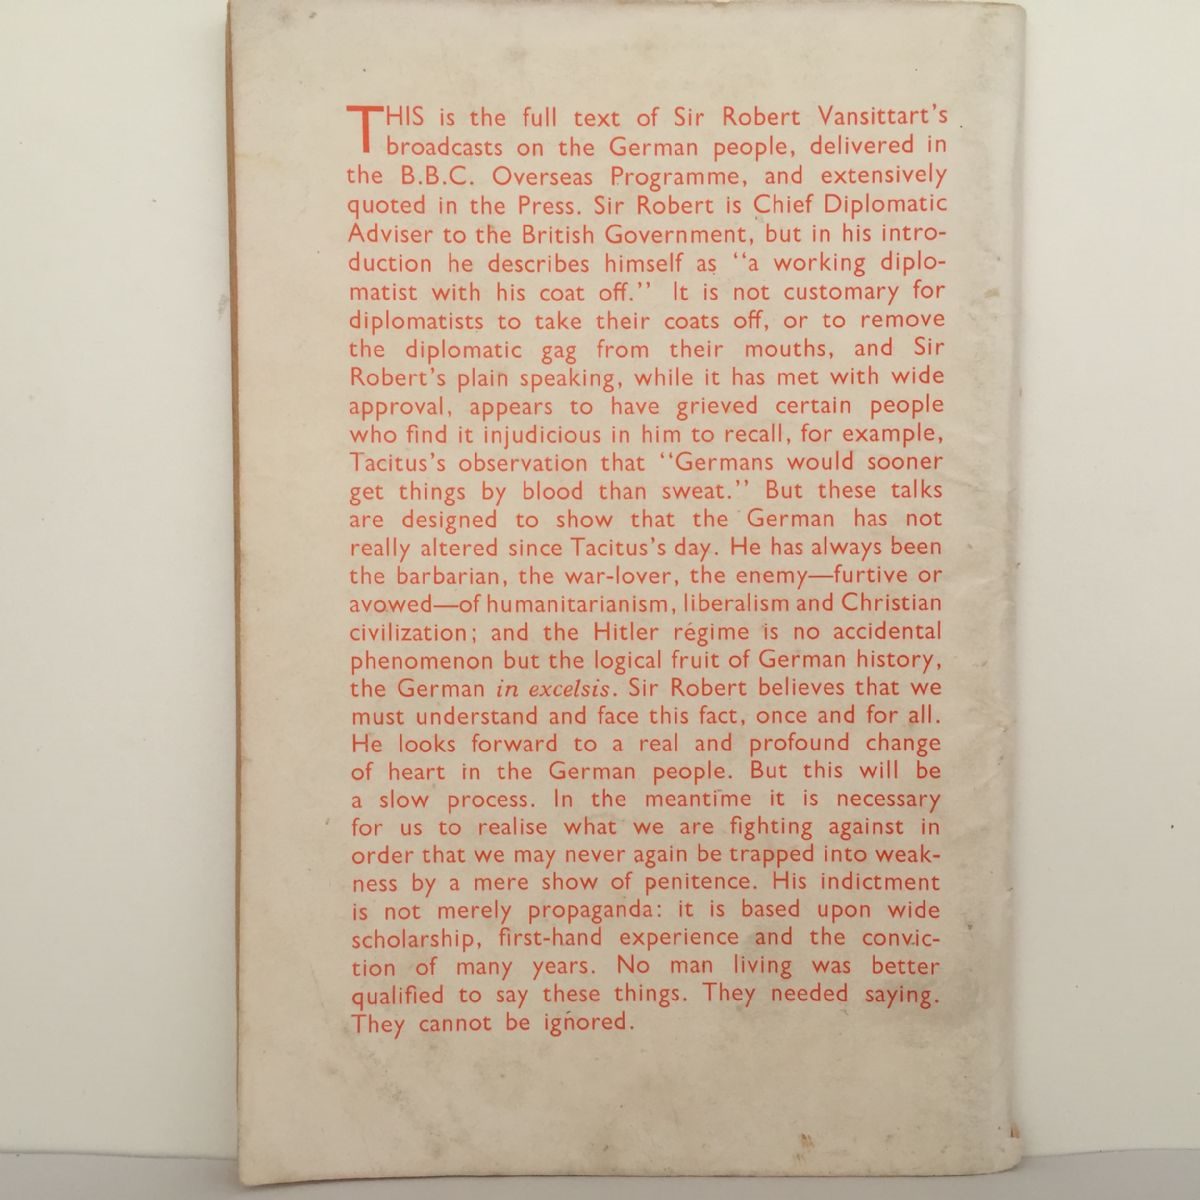 THIS is the full text of Sir Robert Vansittart's
broadcasts on the German people, delivered in
the B.B.C. Overseas Programme, and extensively
quoted in the Press. Sir Robert is Chief Diplomatic
Adviser to the British Government, but in his intro-
duction he describes himself as “a working diplo-
matist with his coat off.” It is not customary for
diplomatists to take their coats off, or to remove
the diplomatic gag from their mouths, and Sir
Robert's plain speaking, while it has met with wide
approval, appears to have grieved certain people
who find it injudicious in him to recall, for example,
Tacitus's observation that “Germans would sooner
get things by blood than sweat.” But these talks
are designed to show that the German has not
really altered since Tacitus's day. He has always been
the barbarian, the war-lover, the enemy—furtive or
avowed—of humanitarianism, liberalism and Christian
civilization; and the Hitler régime is no accidental
phenomenon but the logical fruit of German history,
the German in excelsis. Sir Robert believes that we
must understand and face this fact, once and for all.
He looks forward to a real and profound change
of heart in the German people. But this will be
a slow process. In the meantime it is necessary
for us to realise what we are fighting against in
order that we may never again be trapped into weak-
ness by a mere show of penitence. His indictment
is not merely propaganda: it is based upon wide
scholarship, first-hand experience and the convic-
tion of many years. No man living was better
qualified to say these things. They needed saying.
They cannot be ignored.